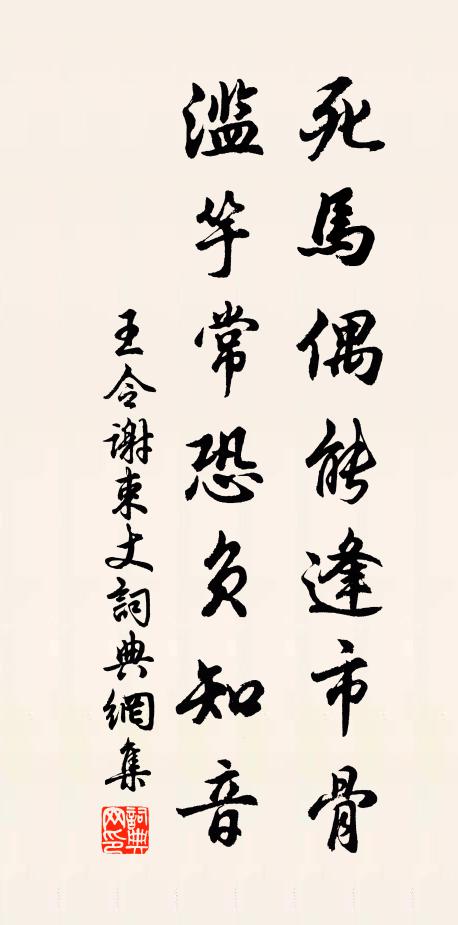 死馬偶能逢市骨
濫竽常恐負知音
王令謝束丈詞典網集
詞典網印